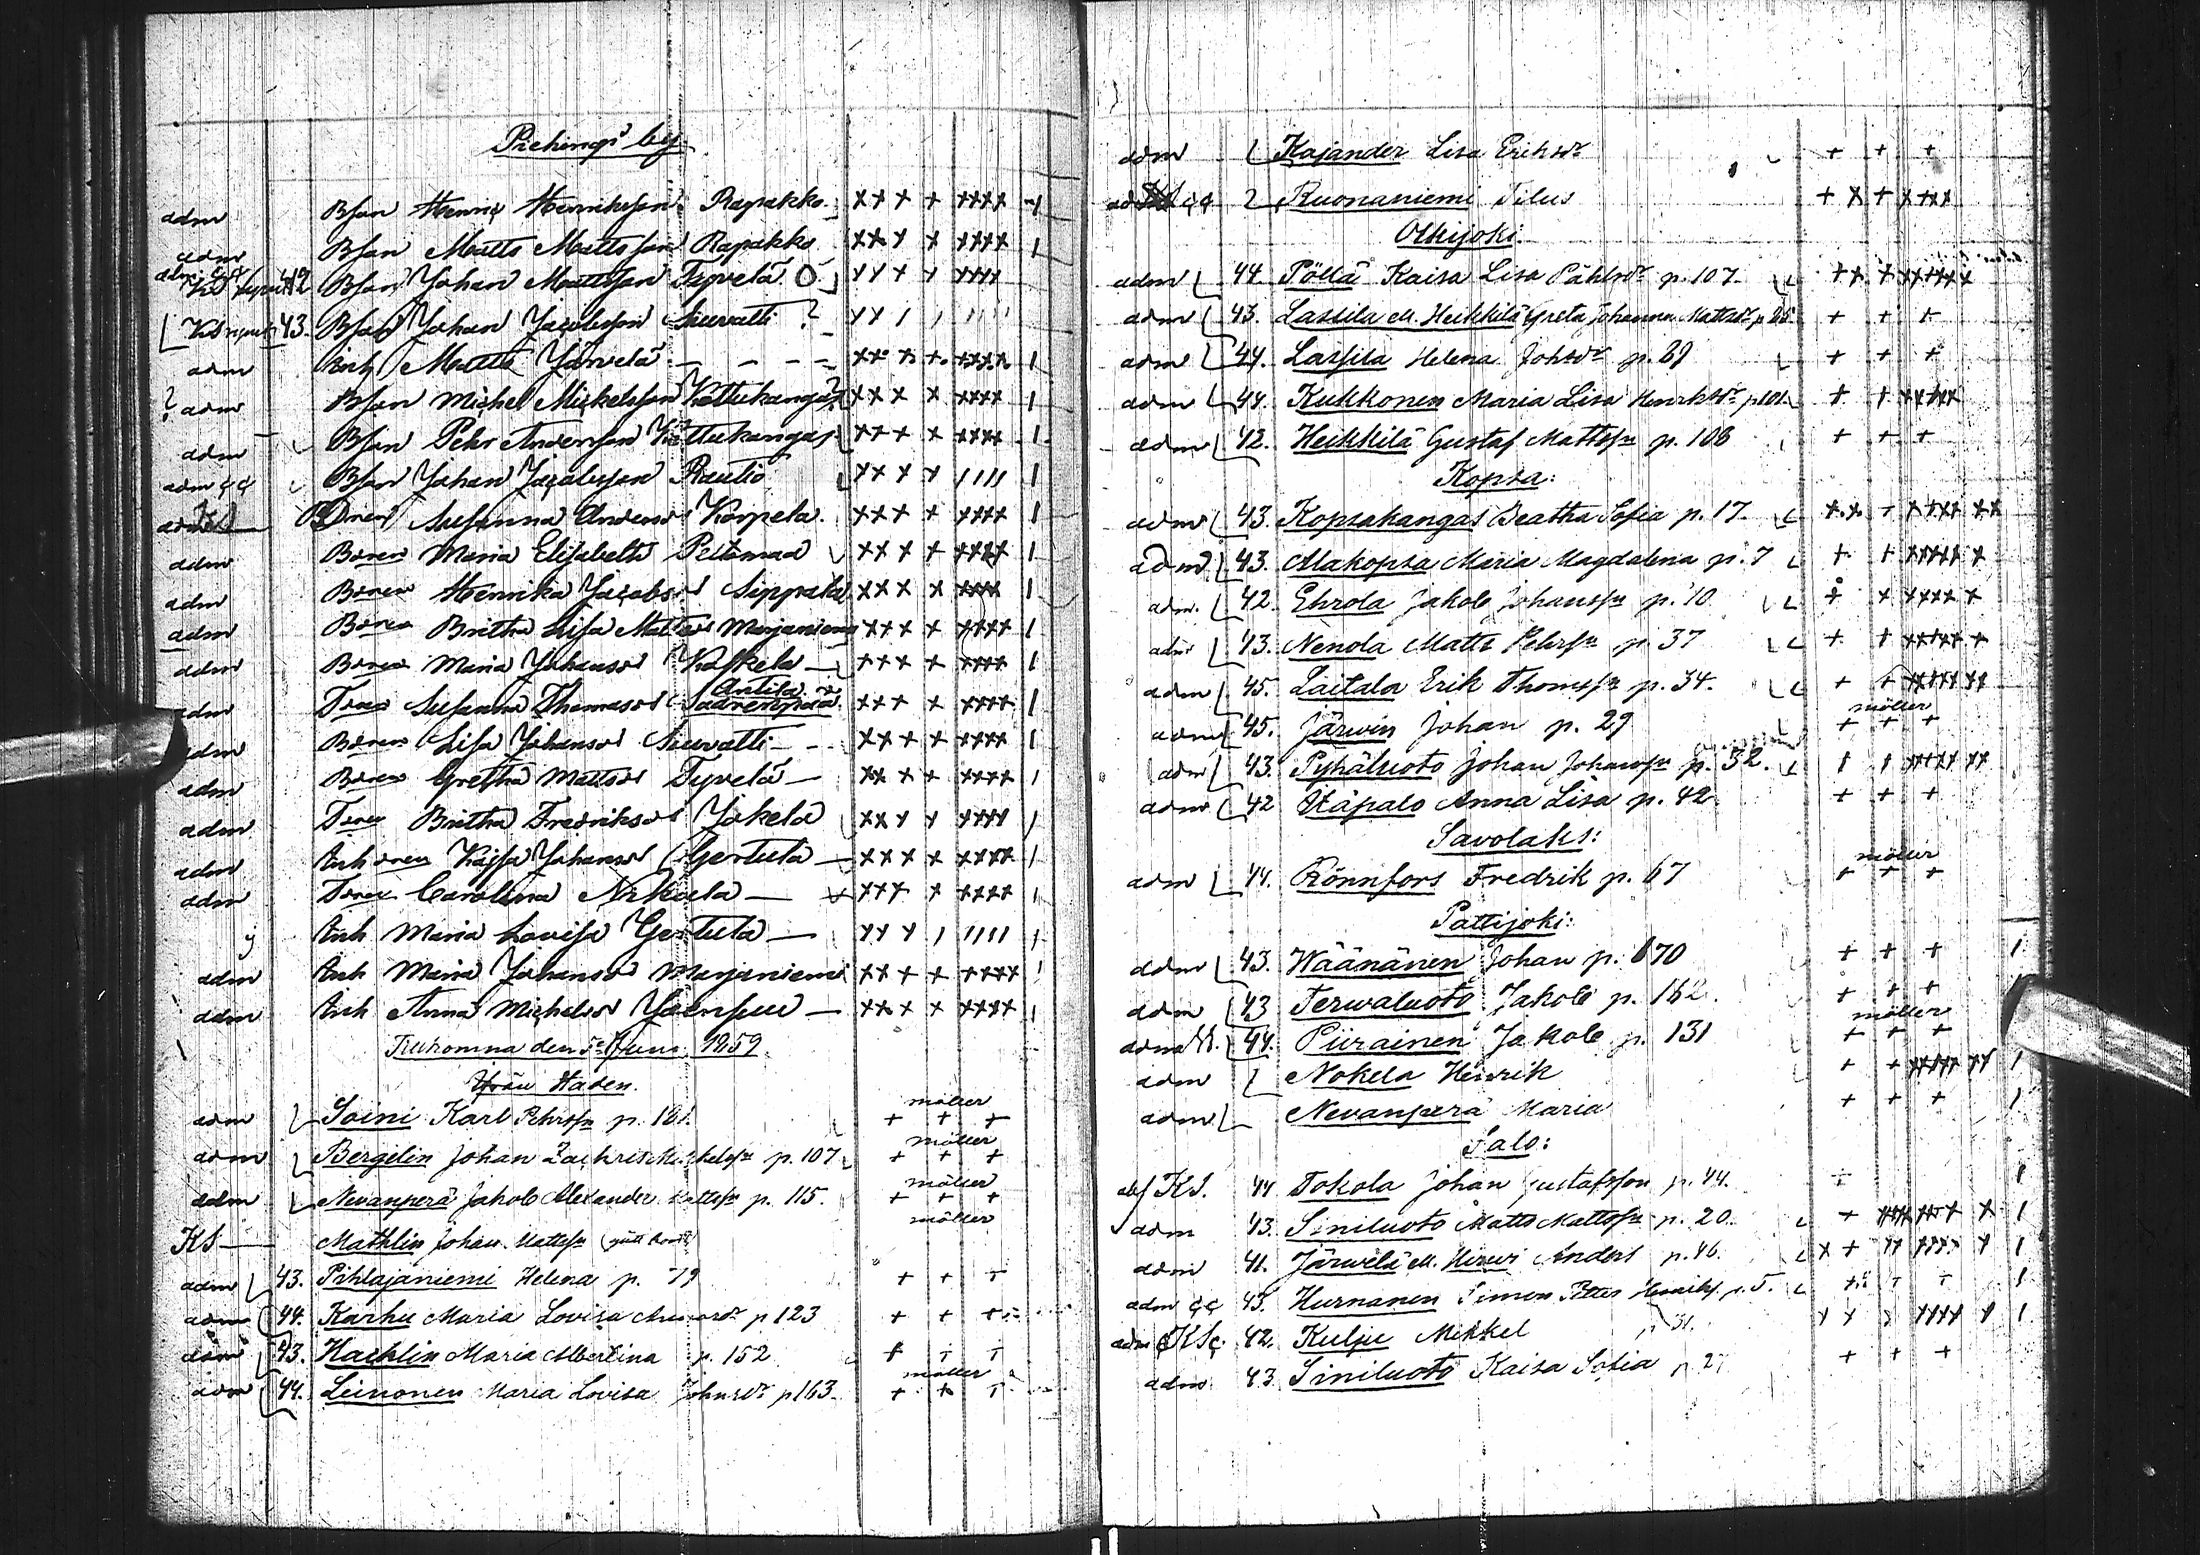 Piehingi by
adm Bson Henric Henriksson Rapakko xx x x xxxx 1
adm Bson Matts Mattsson Rapakko xx x x xxxx 1
42 Bson Johan Mattsson Tyvelä O. xx x x xxxx
43. Bson Johan Jacobsson Siuvatti ? xx 1 1 1111
adm Inh Matts Järvelä - - - - xx x x xxxx 1
? adm Bson Michel Mickelsson Kettukangas xx x x xxxx 1
adm Bson Pehr Andersson Kettukangas xx x x xxxx 1
adm çç Bson Johan Jacobsson Rautio xx x x 1111 1
Susanna Anders d Korpela xx x x xxxx 1
adm Boren Maria Elisabeth Pitsmaa xx x x xxxx 1
adm Boren Henrika Jacobs d Sippala xx x x xxxx 1
adm Boren Britha Lisa Matts d Marjaniemi xx x x xxxx 1
adm Boren Maria Johans d Kaskela xx x x xxxx 1
Antila
adm Susanna Thomas d xx x x xxxx 1
adm Boren Lisa Johans d Siuvatti - xx x x xxxx 1
adm Boren Gretha Matts d Tyvelä - xx x x xxxx 1
adm Britha Fredriks d Jokela xx x x xxxx 1
adm Inh Kajsa Johans d Gertula - xx x x xxxx 1
adm Carolina Nikula - xx x x xxxx 1
Inh Maria Lovisa Gertula - xx x 1 1111 1
adm Inh Maria Johans d Marjaniemi xx x x xxxx 1
adm Inh Anna Michels d - xx x x xxxx 1
Tillkomna den 5te Juni 1859
ifrån Staden.
adm Soini Karl Pehrss p. 181. möller + + +
adm Bergelin Johan p. 107 möller + + +
adm Nevanperä Jakob Alexander Mattss p. 115. möller + + +
KS - Mathlin Johan Mattss möller
adm 43. Pihlajaniemi Helena p. 79 + + +
adm 44. Karhu Maria Lovisa p 123 + + +
adm 43. Hacklin Maria Albertina p. 152 + + +
adm 44. Leinonen Maria Lovisa Johnsdr p 163. möller + + +
adm Kajander Lisa Eriksdr + + +
çç Ruonaniemi Filus + x + xxxx
Olkijoki
adm 44. Pöllä Kaisa Lisa Påhlsdr p. 107. ++ + xxxxxx
adm 43. Lassila M. Heikkilä Greta Johanna Mattsdr p 25 + + +
adm 44. Lassila Helena Johsdr p. 29 + + +
adm 44. Kukkonen Maria Lisa Henriksdr p 101. + + xxxxx
adm 42. Heikkilä Gustaf Mattss p. 108 + + +
Kopsa:
adm 43. Kopsakangas Beatha Sofia p. 17. x.x. + xxxx xx
adm 43. Alakopsa Maria Magdalena p. 7 + + xxxxx x
adm. 42. Ehrola Jakob Johanss p. 10 + x xxxxx x
adm 43. Nenola Matts Pehrss p. 37 + + xxxxx x
adm 45. Laitala Erik Thomss p. 34. + + xxxxx xx
adm 45. Järwin Johan p. 29 möller + + +
adm 43. Pyhäluoto Johan Johanss p. 32. + + xxxxx xx
adm 42 Käpalo Anna Lisa p. 42 + + +
Savolaks:
adm 44. Rönnfors Fredrik p. 67 möller + + +
Pattijoki:
adm 43. Wäänänen Johan p. 170 + + + 1
adm 43 Terwaluoto Jakob p. 162. + + +
adm 44. Piirainen Jakob p. 131 möller + + +
adm Nokela Henrik + + xxxxx xx 1
adm Nevanperä Maria + + + 1
Salo:
KS. 44 Tokola Johan Gustafsson p. 44. + 1
adm 43. Siniluoto Matts Mattss p. 20. + xxxx xxxx x 1
adm 41. Järwelä M. Hirwi Anders p. 46. x + xx xxxx x 1
adm çç 43. Hurnanen Simon Petter Henriks. p. 5. + + + 1
adm 42. Kulju Mikkel p 31. x x x xxxx x 1
adm 43. Siniluoto Kaisa Sofia p. 2 + + +